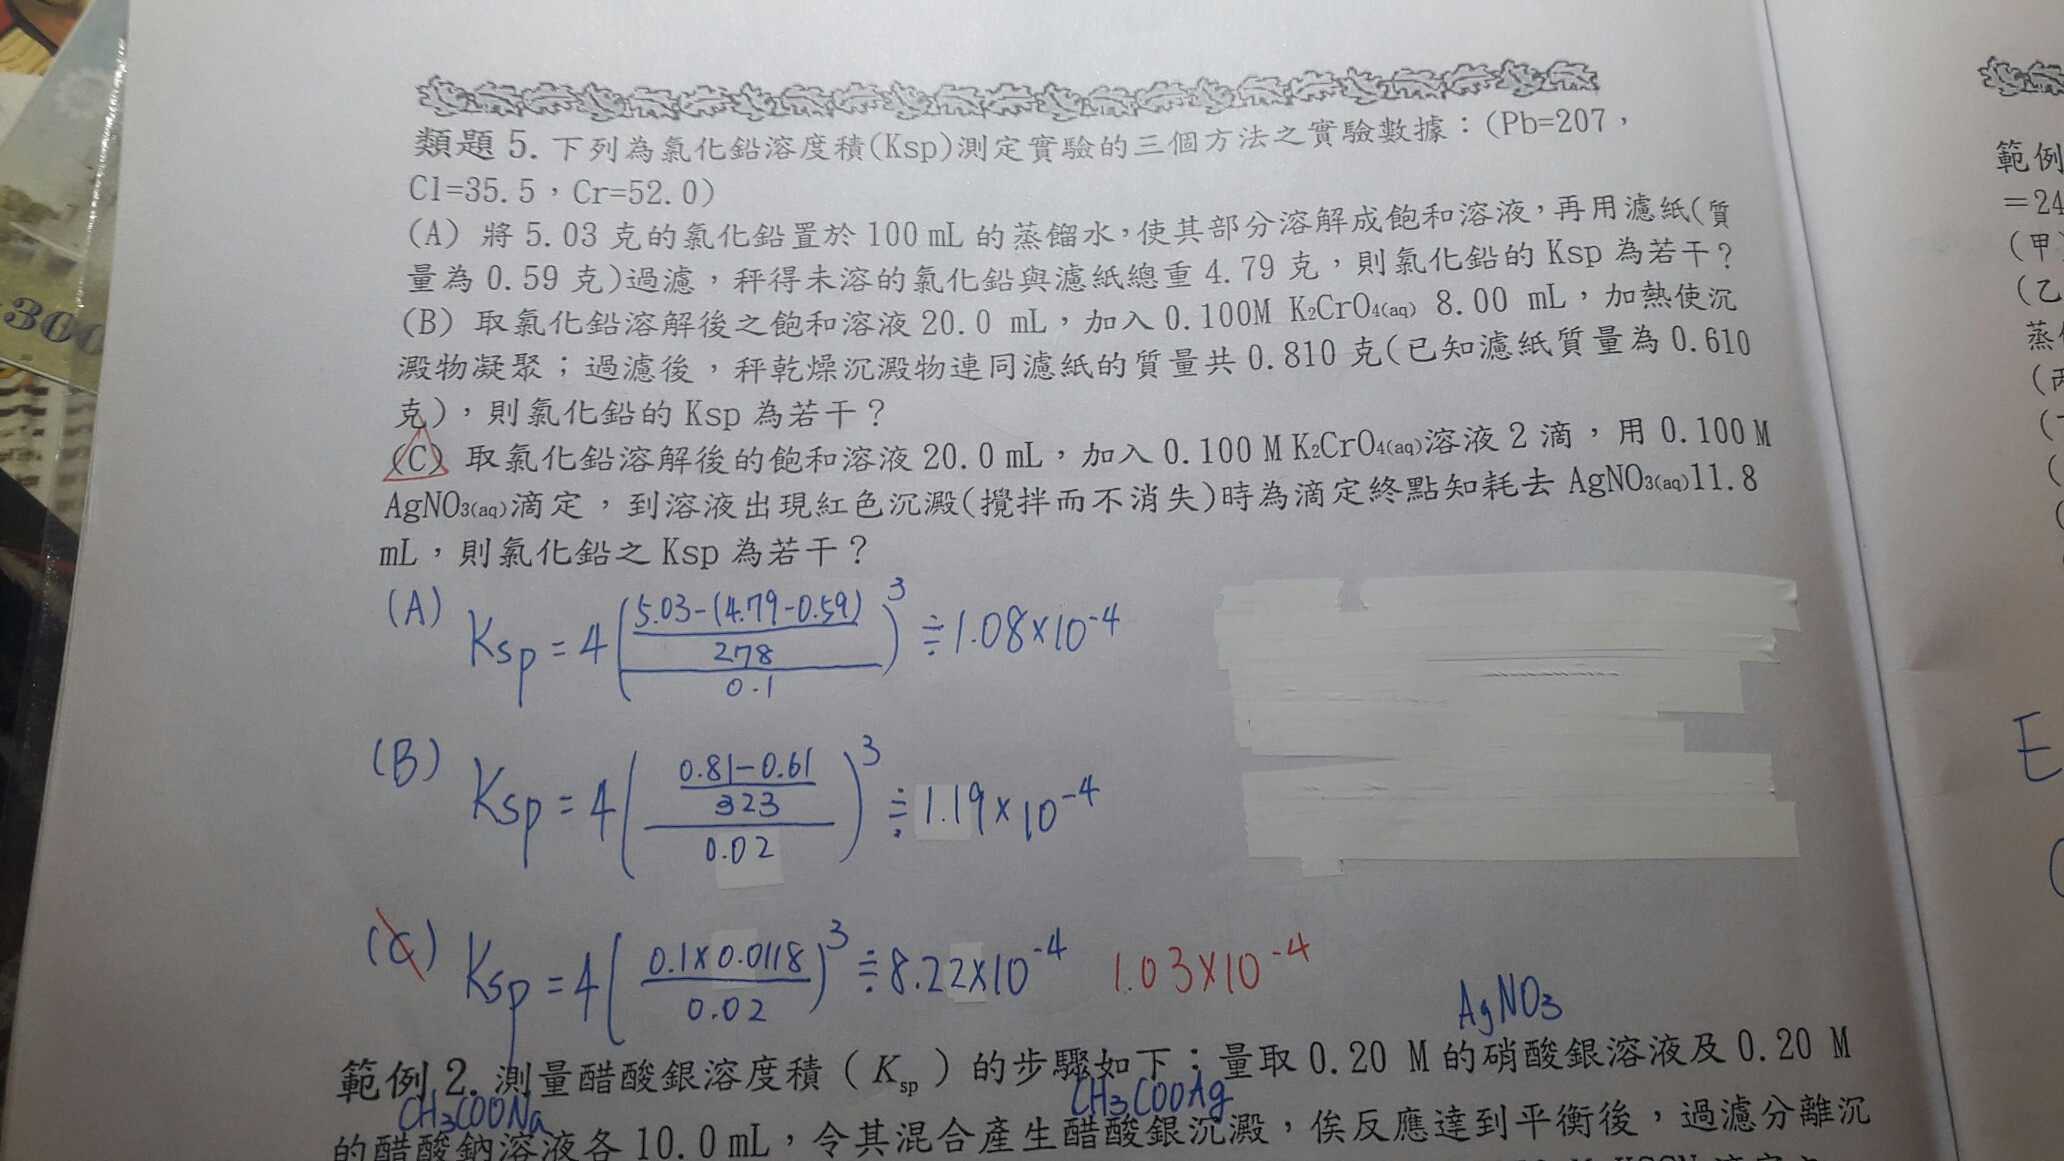 300
類題 5. 下列為氯化鉛溶度積(Ksp)測定實驗的三個方法之實驗數據：(Pb=207，
Cl=35.5，Cr=52.0)
(A) 將 5.03 克的氯化鉛置於 100 mL 的蒸餾水，使其部分溶解成飽和溶液，再用濾紙(質
量為 0.59 克)過濾，秤得未溶的氯化鉛與濾紙總重 4.79 克，則氯化鉛的 Ksp 為若干？
(B) 取氯化鉛溶解後之飽和溶液 20.0 mL，加入 0.100M K₂CrO₄(aq) 8.00 mL，加熱使沉
澱物凝聚；過濾後，秤乾燥沉澱物連同濾紙的質量共 0.810 克(已知濾紙質量為 0.610
克)，則氯化鉛的 Ksp 為若干？
(C) 取氯化鉛溶解後的飽和溶液 20.0 mL，加入 0.100 M K₂CrO₄(aq)溶液 2 滴，用 0.100 M
AgNO₃(aq)滴定，到溶液出現紅色沉澱(攪拌而不消失)時為滴定終點知耗去 AgNO₃(aq)11.8
mL，則氯化鉛之 Ksp 為若干？
(A) Ksp = 4(((5.03-(4.79-0.59))/278)/0.1)³ ≑ 1.08×10⁻⁴
(B) Ksp = 4(((0.81-0.61)/323)/0.02)³ ≑ 1.19×10⁻⁴
(C) Ksp = 4((0.1×0.0118)/0.02)³ ≑ 8.22×10⁻⁴ 1.03×10⁻⁴
AgNO₃
範例 2. 測量醋酸銀溶度積（Ksp）的步驟如下：量取 0.20 M 的硝酸銀溶液及 0.20 M
CH₃COONa CH₃COOAg
的醋酸鈉溶液各 10.0 mL，令其混合產生醋酸銀沉澱，俟反應達到平衡後，過濾分離沉
範例
=24
(甲)
(乙
蒸
E